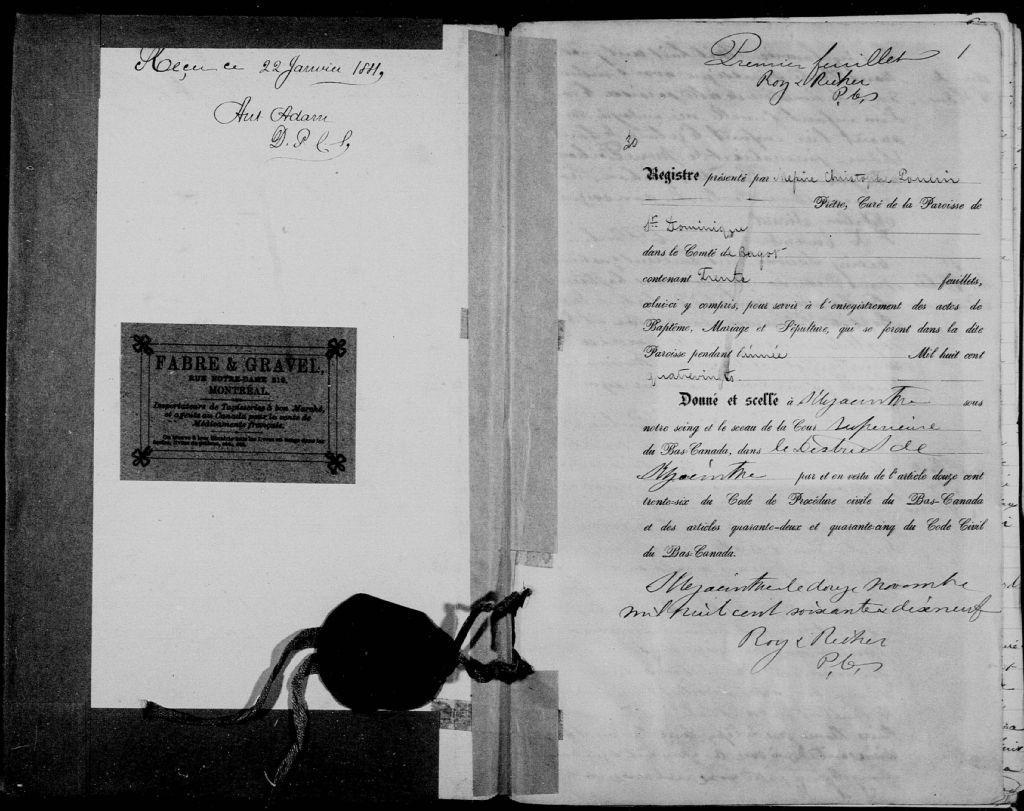 Reçu ce 22 Janvier 1881,
Ant Adam
D. P. C. S,
FABRE & GRAVEL,
RUE NOTRE-DAME 219,
MONTRÉAL.
Importateurs de Tapisseries à bon Marché,
et agents au Canada pour la vente de
Médicaments français.
1
Premier feuillet
Roy & Richer
P. C. S
30
Registre présenté par Messire Christophe
Prêtre, Curé de la Paroisse de
St. Dominique
dans le Comté de Bagot
contenant Trente feuillets,
celui-ci y compris, pour servir à l'enregistrement des actes de
Baptême, Mariage et Sépulture, qui se feront dans la dite
Paroisse pendant l'année Mil huit cent
quatrevingts
Donné et scellé à St Hyacinthe sous
notre seing et le sceau de la Cour Supérieure
du Bas-Canada, dans le District de
St Hyacinthe par et en vertu de l'article douze cent
trente-six du Code de Procédure civile du Bas-Canada
et des articles quarante-deux et quarante-cinq du Code Civil
du Bas-Canada.
St Hyacinthe le douze novembre
mil huit cent soixante & dix neuf
Roy & Richer
P. C. S